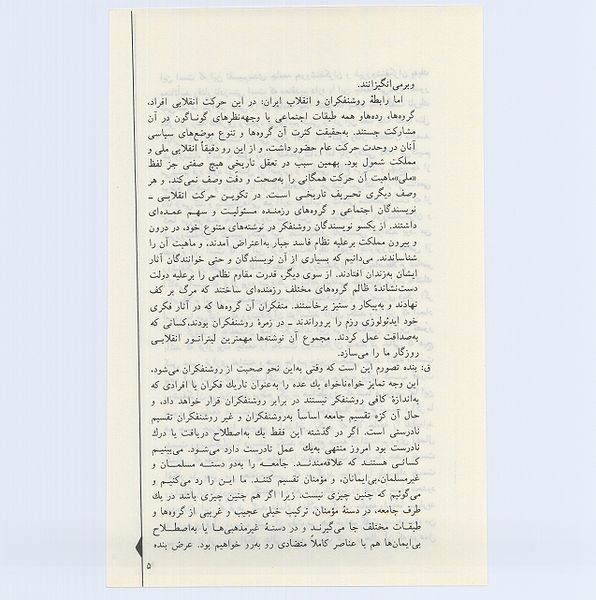 وبرمی‌انگیزانند.
اما رابطهٔ روشنفکران و انقلاب ایران: در این حرکت انقلابی افراد،
گروه‌ها، رده‌هاو همه طبقات اجتماعی با وجهه‌نظرهای گوناگون در آن
مشارکت جستند. به‌حقیقت کثرت آن گروه‌ها و تنوع موضع‌های سیاسی
آنان در وحدت حرکت عام حضور داشت، و از این رو دقیقاً انقلابی ملی و
مملکت شمول بود. بهمین سبب در تعقل تاریخی هیچ صفتی جز لفظ
«ملی»ماهیت آن حرکت همگانی را به‌صحت و دقت وصف نمی‌کند، و هر
وصف دیگری تحریف تاریخی است. در تکوین حرکت انقلابی ـ
نویسندگان اجتماعی و گروه‌های رزمنده مسئولیت و سهم عمده‌ای
داشتند. از یکسو نویسندگان روشنفکر در نوشته‌های متنوع خود، در درون
و بیرون مملکت برعلیه نظام فاسد جبار به‌اعتراض آمدند، و ماهیت آن را
شناساندند. می‌دانیم که بسیاری از آن نویسندگان و حتی خوانندگان آثار
ایشان به‌زندان افتادند. از سوی دیگر، قدرت مقاوم نظامی را برعلیه دولت
دست‌نشاندهٔ ظالم گروه‌های مختلف رزمنده‌ای ساختند که مرگ بر کف
نهادند و به‌پیکار و ستیز برخاستند. متفکران آن گروه‌ها که در آثار فکری
خود ایدئولوزی رزم را پروراندند ـ در زمرهٔ روشنفکران بودند،کسانی که
به‌صداقت عمل کردند. مجموع آن نوشته‌ها مهمترین لیتراتور انقلابی
روزگار ما را می‌سازد.
ق: بنده تصورم این است که وقتی به‌این نحو صحبت از روشنفکران می‌شود،
این وجه تمایز خواه‌ناخواه یك عده را به‌عنوان تاریك فکران یا افرادی که
به‌اندازهٔ کافی روشنفکر نیستند در برابر روشنفکران قرار خواهد داد، و
حال آن کزه تقسیم جامعه اساساً به‌روشنفکران و غیر روشنفکران تقسیم
نادرستی است. اگر در گذشته این فقط یك به‌اصطلاح دریافت یا درك
نادرست بود امروز منتهی به‌یك عمل نادرست دارد می‌شود. می‌بینیم
کسانی هستند که علاقه‌مندند. جامعه را به‌دو دسته مسلمان و
غیرمسلمان،بی‌ایمانان، و مؤمنان تقسیم کنند. ما این را رد می‌کنیم و
می‌گوئیم که چنین چیزی نیست. زیرا اگر هم چنین چیزی باشد در یك
طرف جامعه، در دستهٔ مؤمنان، ترکیب خیلی عجیب و غریبی از گروه‌ها و
طبقات مختلف جا می‌گیرند و در دستهٔ غیرمذهبی‌ها یا به‌اصطلاح
بی‌ایمان‌ها هم با عناصر کاملاً متضادی رو به‌رو خواهیم بود. عرض بنده
۵